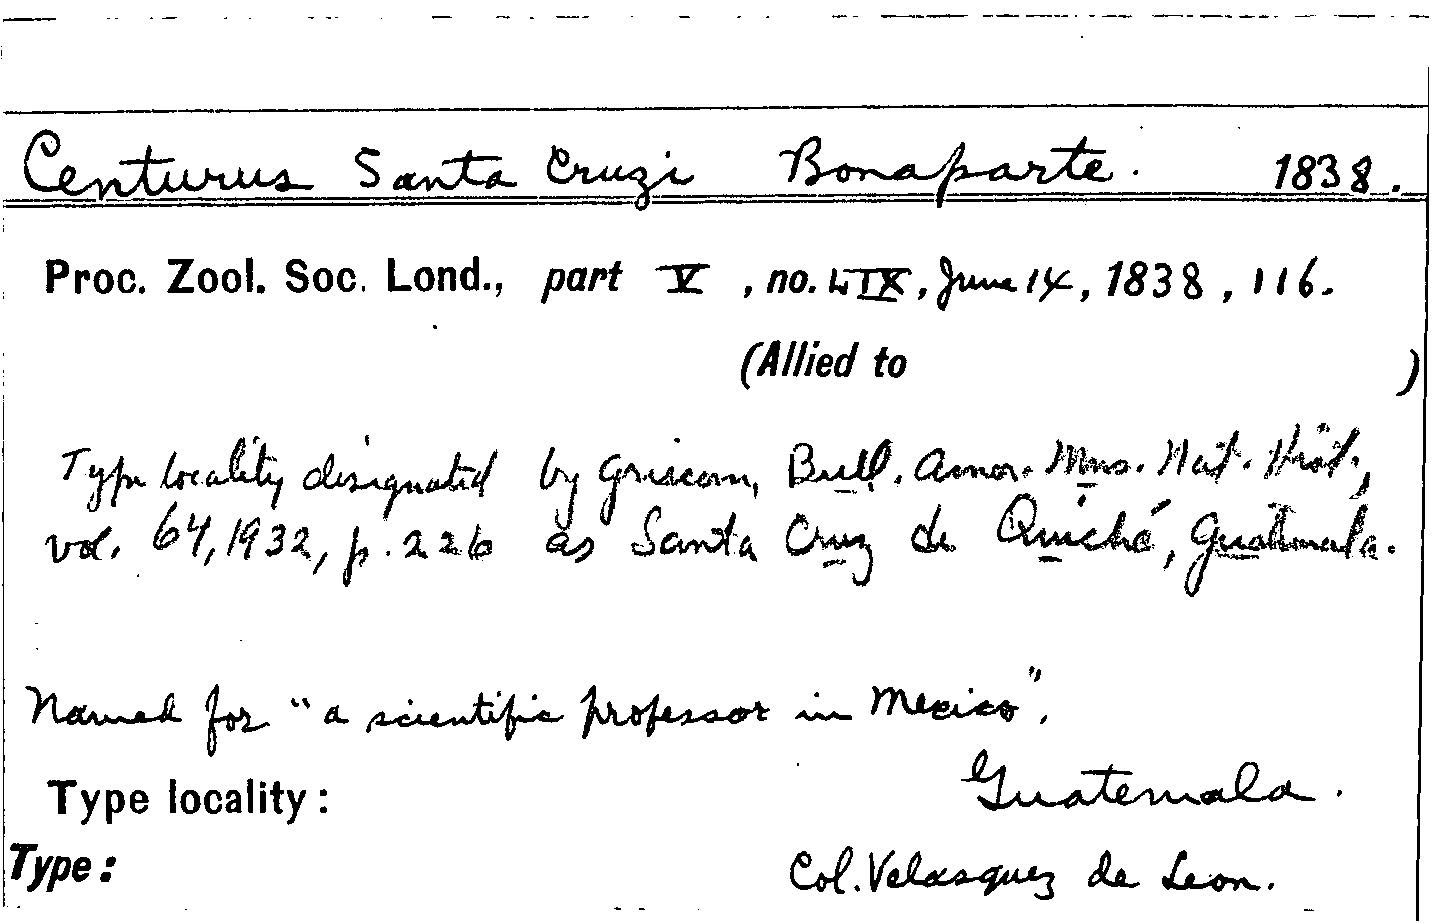 Centurus Santa Cruzi Bonaparte. 1838.
Proc. Zool. Soc. Lond., part V, no. LIX, June 14, 1838, 116.
(Allied to )
Type locality designated by Griscom, Bull. Amer. Mus. Nat. Hist.,
vol. 64, 1932, p. 226 as Santa Cruz de Quiché, Guatemala.
Named for "a scientific professor in Mexico".
Type locality: Guatemala.
Type: Col. Velasquez de Leon.